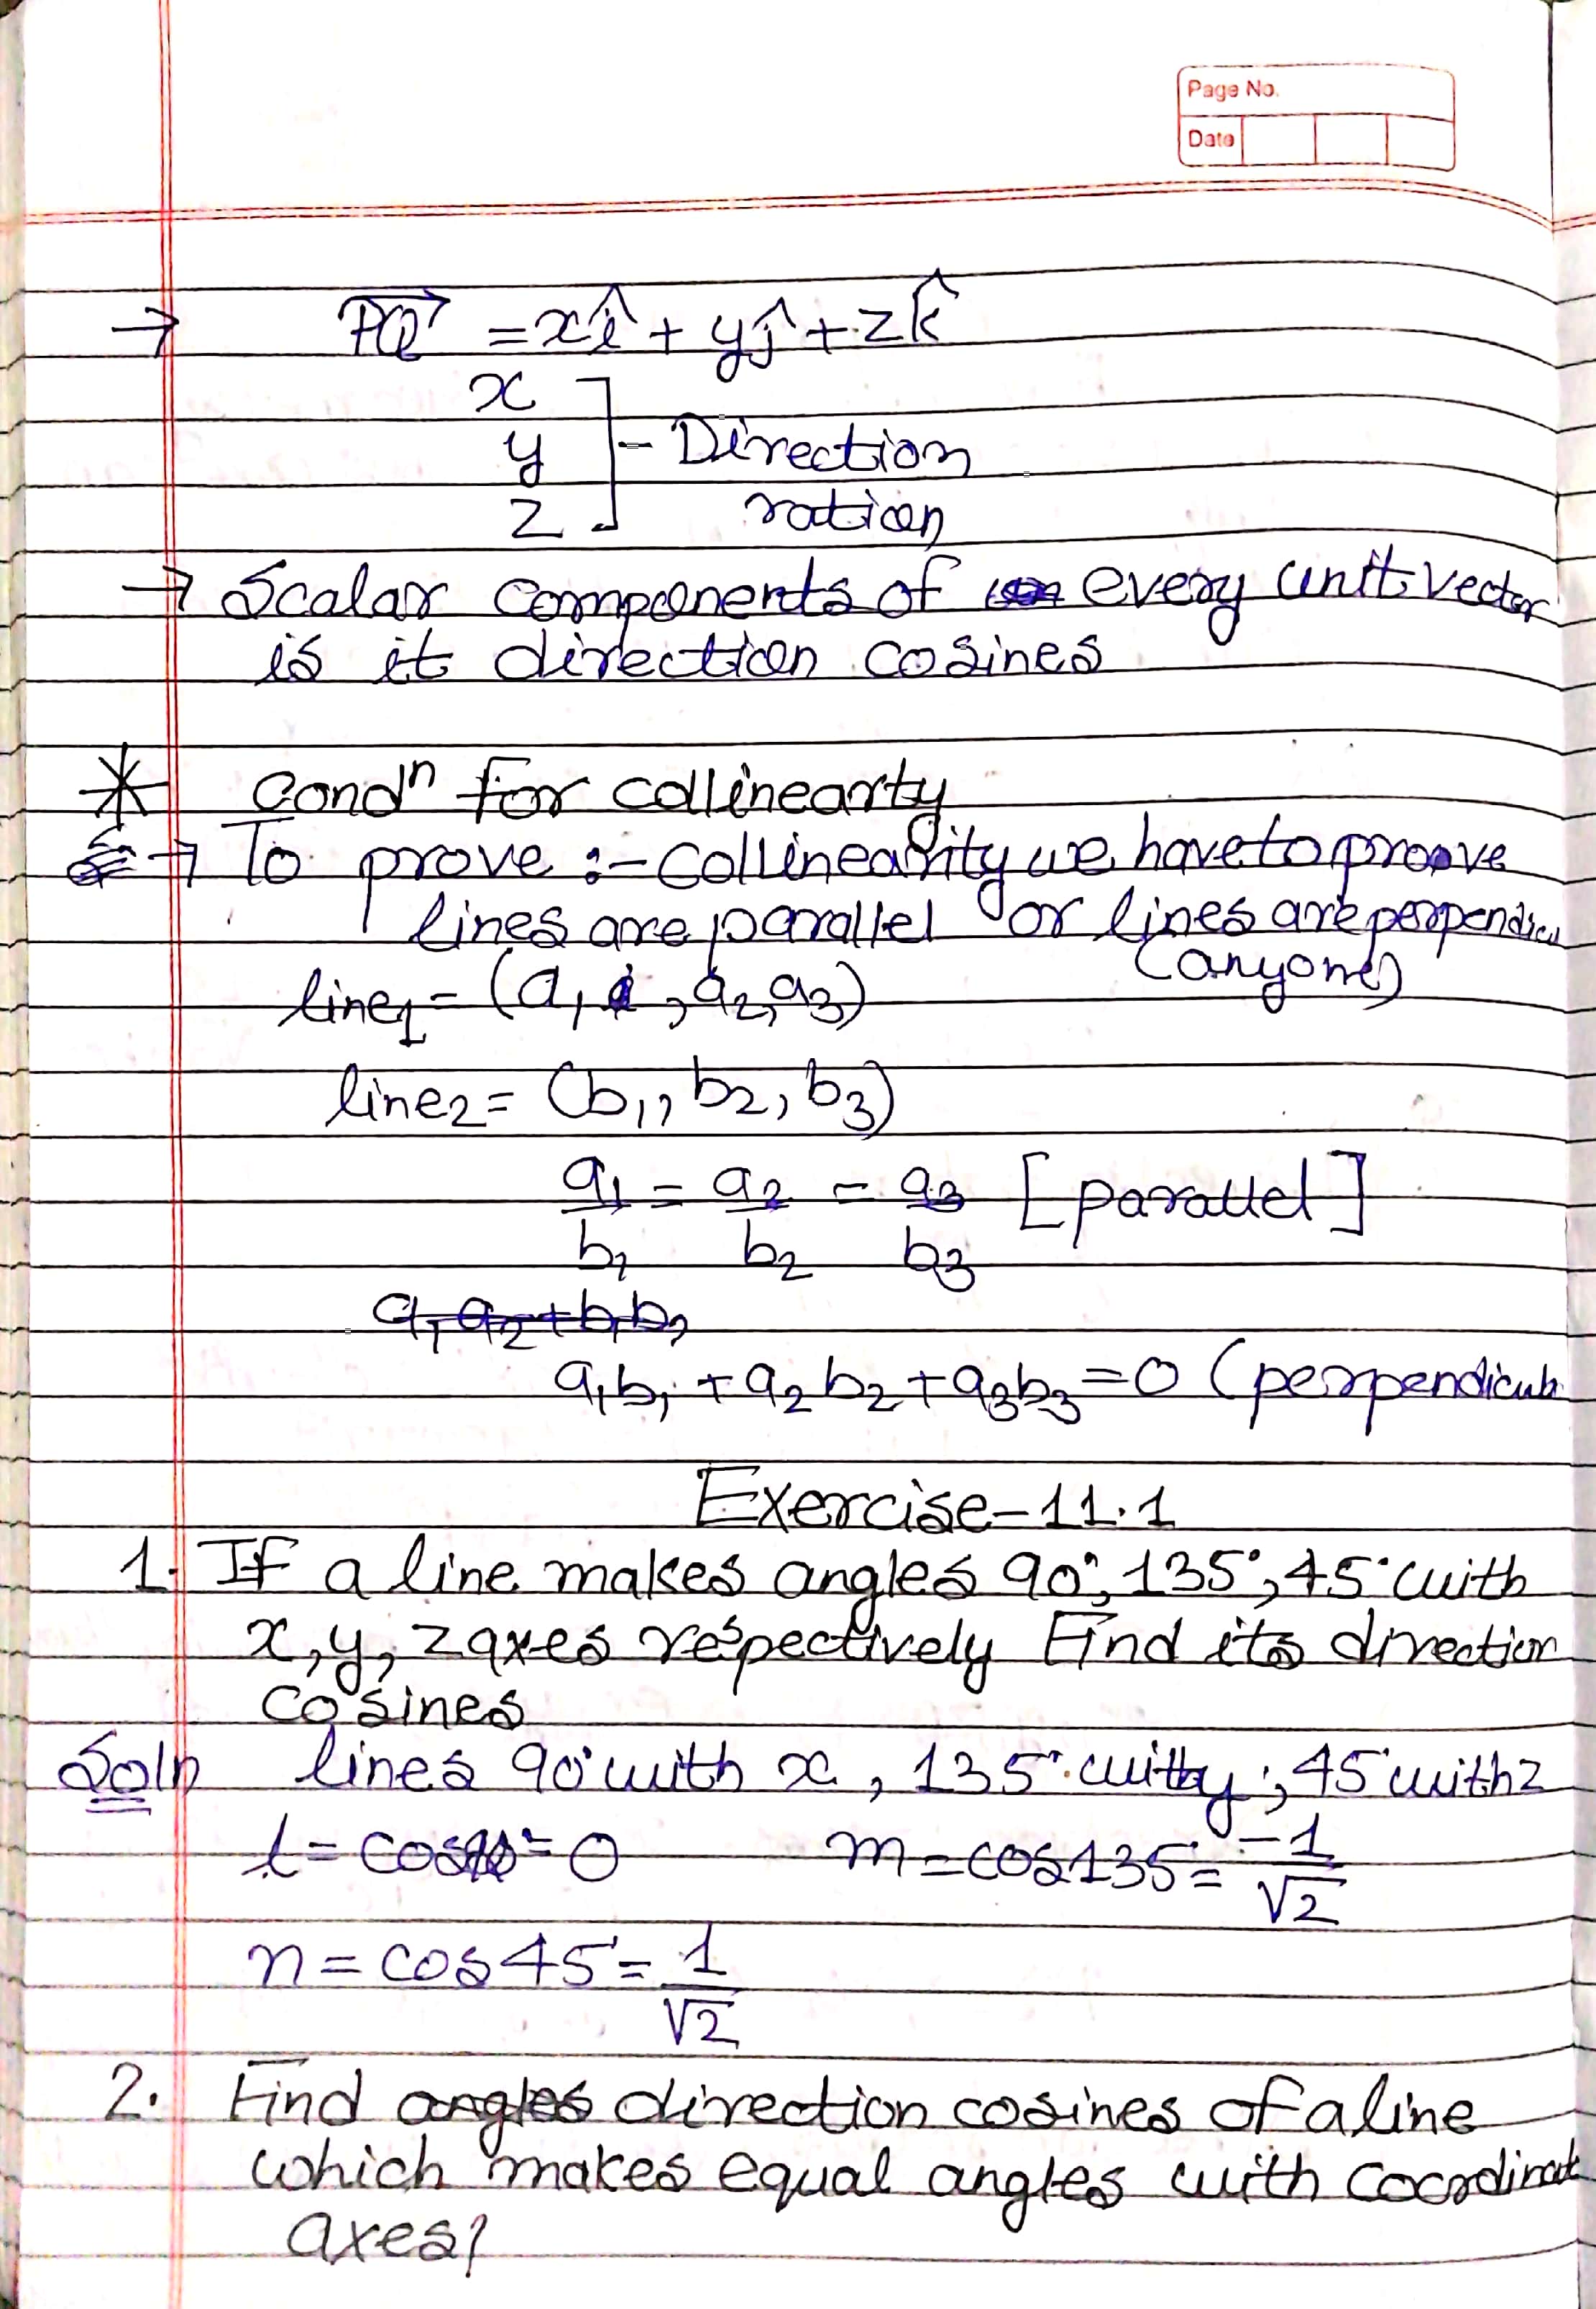 Page No.
Date
→ PQ⃗ = xî + yĵ + zk̂
x
y - Direction
z ration
→ Scalar components of every unit vector
is it direction cosines
* Condⁿ For collinearty
→ To prove :- Collinearity we have to proove
lines are parallel or lines are perpendicu
(anyone)
line1 = (a₁, a₂, a₃)
line2 = (b₁, b₂, b₃)
a₁/b₁ = a₂/b₂ = a₃/b₃ [parallel]
a₁a₂+b₁b₂
a₁b₁ + a₂b₂ + a₃b₃ = 0 (perpendicula
Exercise-11.1
1. If a line makes angles 90°, 135°, 45° with
x, y, z axes respectively Find its direction
cosines
Soln lines 90° with x, 135° with y, 45° with z
l = cos90° = 0 m = cos135° = -1/√2
n = cos45° = 1/√2
2. Find angles direction cosines of a line
which makes equal angles with coordinat
axes?